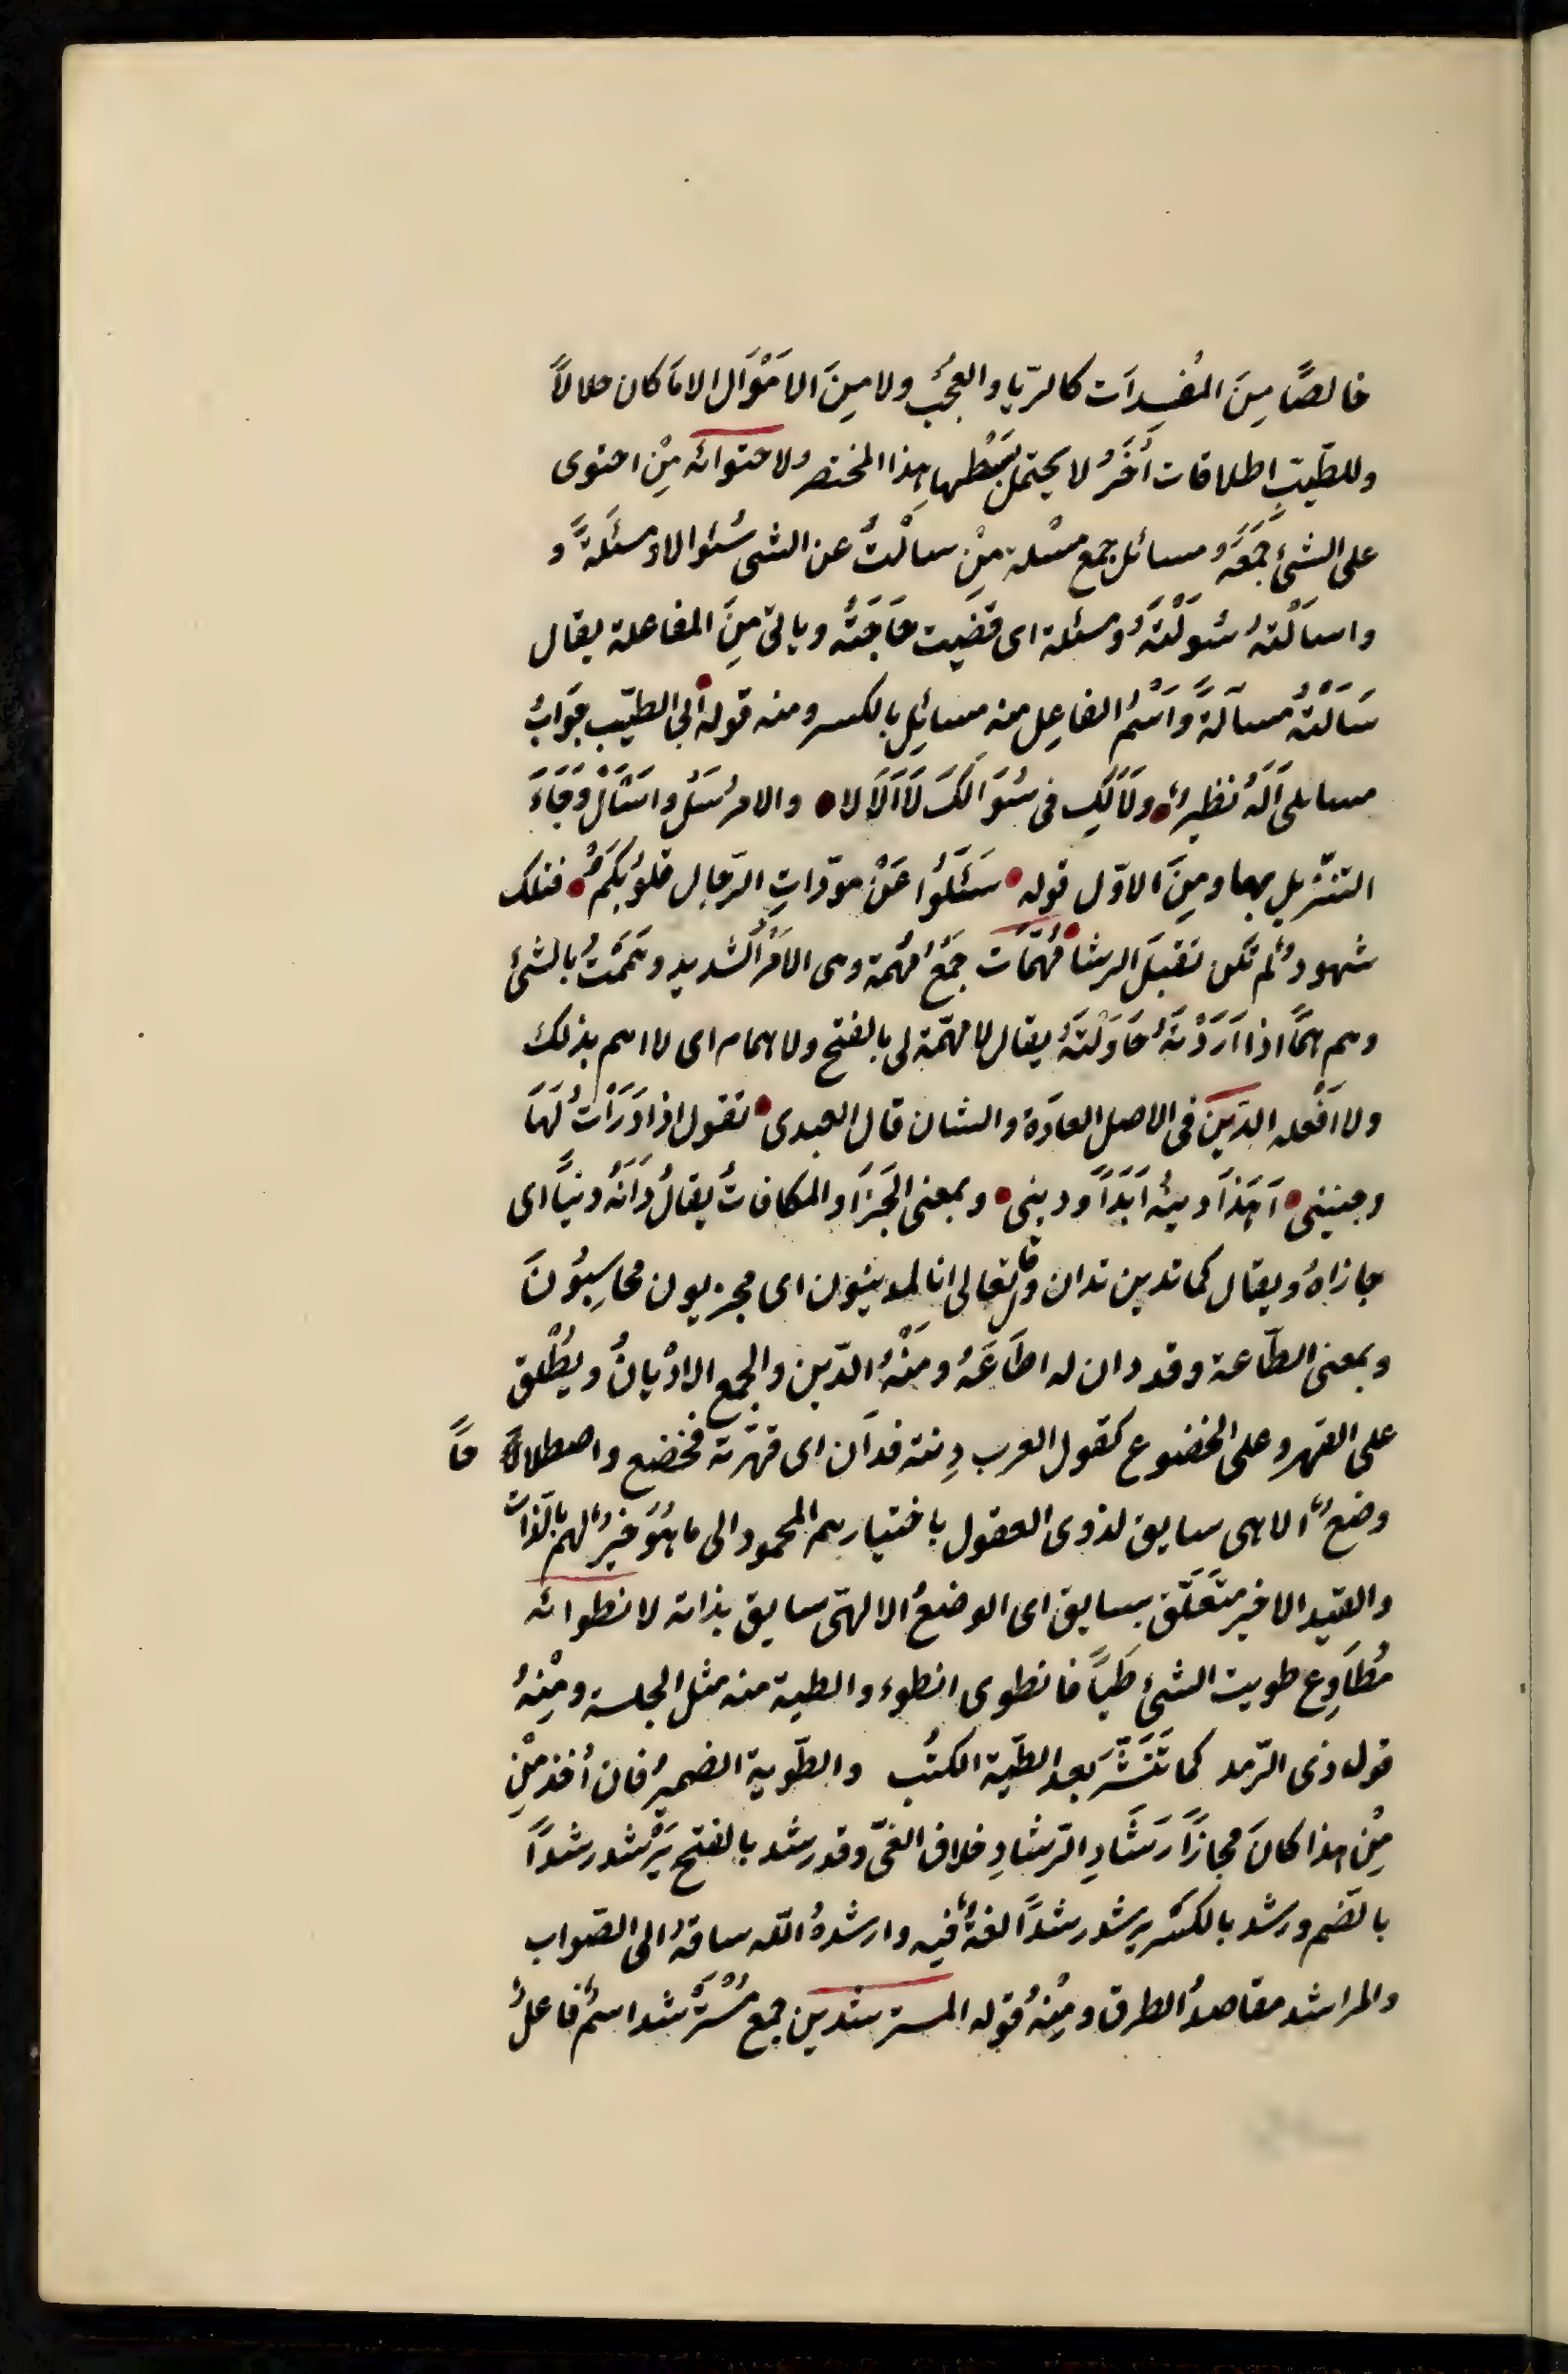 خالصًا مِنَ المُفسِدَات كالرّيا والعجُب ولا مِنَ الامَوْال الا مَا كان حلالاً
وللطّيبِ اطلاقات أُخَرُ لا يحتمل بَسْطها هذا المختصر ولاحتوائه مِنْ احتوى
على الشئ جَمَعَهُ ومسائل جمع مسْئلة مِنْ سالْتُ عن الشى سُئوالا ومسئَلَةً و
واسالْتهُ سُئولَتَهُ ومسئلة اى قضَيت حَاجَتُه وياتى مِنَ المفاعلة يقال
سَالْتهُ مسالَةً وَاسْمُ الفاعِل منه مسائِل بالكسر ومنه قوله ابى الطيّب جَوَابُ
مسايلى اَلَهُ نظيرُ • ولَا لَكِ فى سُئوَالكَ لَا اَلَا لا • والامر سَلْ واسْئَالْ وَجَاءَ
التنْزيل بهما ومِنَ الاوّل قوله • سَئَلُوا عَنْ موّداتِ الرّجال قلوُبكمُ • فتلك
شهودُ لم تكن تقبَل الرشا • مُهمّات جَمْعُ مُهمة وهى الاَمْرُ الشديد وهَمَمْتُ بالشئ
وهم همًّا اذا اَرَدْتَهُ حَاوَلْتَهُ يقال لا مهمّة لى بالفتح ولا همام اى لا اهم بذلك
ولا اَفْعله الدّين فى الاصل العادَة والشان قال العبدى • تقول اذا دَرَأتُ لَهَا
وضينى • اَهَذَا دينُه اَبَدًا ودينى • وبمعنى الجَزَا والمكافاتُ يقالُ دَانَهُ دينًا اى
جازاهُ ويقال كما تدين تدان وقال تعالى انا لمدينون اى مجزيون محاسِبُونَ
وبمعنى الطّاعة وقد دان له اطَاعَهُ ومنْهُ الدّين والجمع الادْيانُ ويُطْلق
على القهر وعلى الخضوع كقول العرب دِنته فدَان اى قهرْته فخضع واصطلاحًا
وضعُ الاهى سايق لذوى العقول باختيارهم المحمود الى ما هُوَ خيرُ لهم بالذات
والقيد الاخير متعَلّق بسايق اى الوضعُ الالهىّ سايق بذاته لانطوائه
مُطاوِع طويت الشئ طَيّاً فانطوى انطوء والطية منه مثل الجلسة ومِنْهُ
قول ذى الرّمه كما تَنَشّرَ بعد الطّية الكتُب والطّوية الضميرُ فان أُخذ مِنْ
مِنْ هذا كانَ مجازًا رَشَادِ الرّشادِ خلاف الغىّ وقد رشد بالفتح يَرْشد رشدًا
بالضّم ورشد بالكسَر يرشد رشدًا لغةُ فيه وارشدهُ اللّه ساقهُ الى الصّواب
والمراشد مقاصدُ الطرق ومِنْهُ قوله المسترشدين جمع مُسْتَرْشد اسمُ فاعلُ